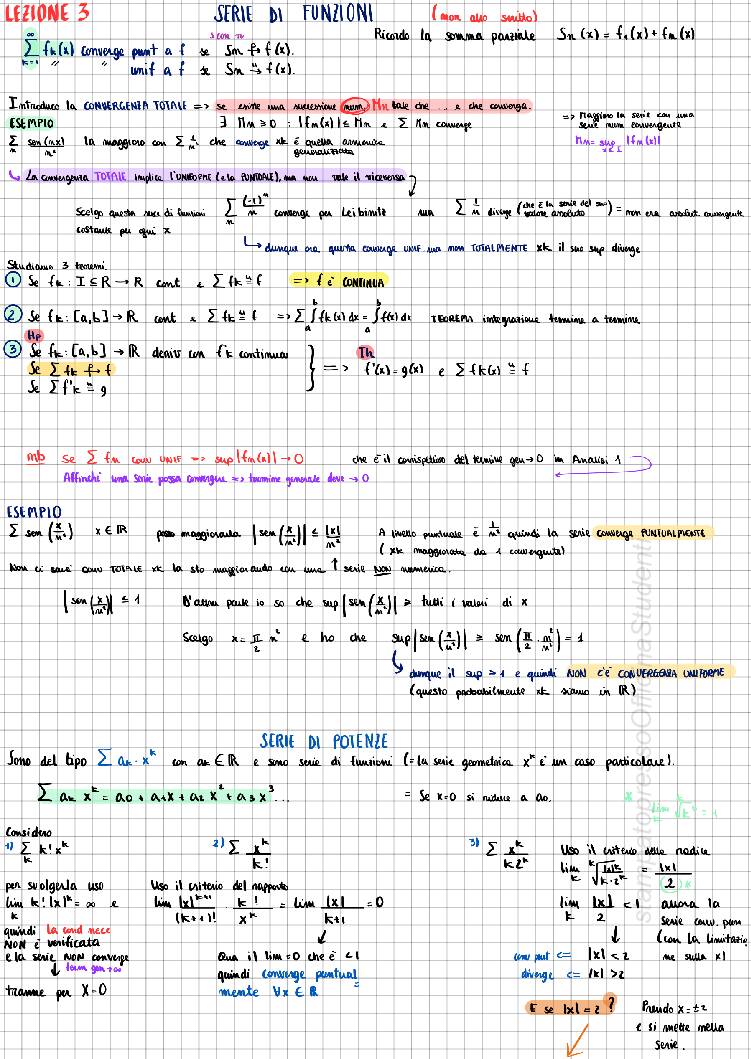 LEZIONE 3
SERIE DI FUNZIONI
Ricordo la somma parziale Sn(x) = f1(x) + fn(x)
∑ fk(x) converge punt a f se Sn p→ f(x).
k=1 " " unif a f se Sn u→ f(x).
Introduco la CONVERGENZA TOTALE => se esiste una successione num Mn tale che ... e che converga.
ESEMPIO
∃ Mn ≥ 0 : |fn(x)| ≤ Mn e ∑ Mn converge
=> Maggioro la serie con una
serie num convergente
Mn = sup |fn(x)|
x∈I
∑ sen(nx)/n² la maggioro con ∑ che converge xk è quella armonica
generalizzata
La convergenza TOTALE implica l'UNIFORME (e la PUNTUALE), ma non vale il viceversa
Scelgo questa serie di funzioni ∑ (-1)ⁿ/n converge per Leibinitz ma ∑ 1/n diverge (che è la serie del suo valore assoluto) = non era absolut. convergente
costante per ogni x
dunque ora questa converge UNIF ma non TOTALMENTE xk il suo sup diverge
Studiamo 3 teoremi
1 Se fk : I ⊆ R → R cont e ∑ fk u= f => f è CONTINUA
2 Se fk : [a,b] → R cont e ∑ fk u= f => ∑ ∫ fk(x) dx = ∫ f(x) dx TEOREMA integrazione termine a termine
Hp
3 Se fk : [a,b] → R deriv con f'k continua
Se ∑ fk p→ f
Se ∑ f'k u= g
=> Th
f'(x) = g(x) e ∑ fk(x) u= f
nb Se ∑ fn conv UNIF => sup |fn(x)| → 0 che è il corrispettivo del termine gen → 0 in Analisi 1
Affinchè una serie possa convergere => termine generale deve → 0
ESEMPIO
∑ sen(x/n²) x ∈ R posso maggiorarla |sen(x/n²)| ≤ |x|/n² A livello puntuale è 1/n² quindi la serie converge PUNTUALMENTE
(xk maggiorata da 1 convergente)
Non ci sarà conv TOTALE xk la sto maggiorando con una ↑ serie NON numerica.
|sen(x/n²)| ≤ 1 D'altra parte io so che sup |sen(x/n²)| ≥ tutti i valori di x
Scelgo x = π/2 n² e ho che sup |sen(x/n²)| ≥ sen(π/2 · n²/n²) = 1
dunque il sup > 1 e quindi NON C'È CONVERGENZA UNIFORME
(questo probabilmente xk siamo in R)
SERIE DI POTENZE
Sono del tipo ∑ ak · xᵏ con ak ∈ R e sono serie di funzioni (= la serie geometrica xᵏ è un caso particolare).
∑ ak xᵏ = a0 + a1x + a2x² + a3x³ ... = Se x=0 si riduce a a0.
Considero
1) ∑ k! xᵏ
k
per svolgerla uso
lim k! |x|ᵏ = ∞ e
k
quindi la cond nece
NON è verificata
e la serie NON converge
↓ term gen → ∞
tranne per X=0
2) ∑ xᵏ/k!
Uso il criterio del rapporto
lim |x|ᵏ⁺¹/(k+1)! · k!/xᵏ = lim |x|/k+1 = 0
↓
Qua il lim=0 che è <1
quindi converge puntual
mente ∀x ∈ R
3) ∑ xᵏ/k2ᵏ
Uso il criterio della radice
lim = |x|/2
k
lim |x|/2 < 1 allora la
k
serie conv. pun
(con la limitazio
ne sulla x)
conv punt <= |x| < 2
diverge <= |x| > 2
E se |x| = 2 ?
Prendo x = ±2
e si mette nella
serie.
stampatopressoOfficinaStudenti